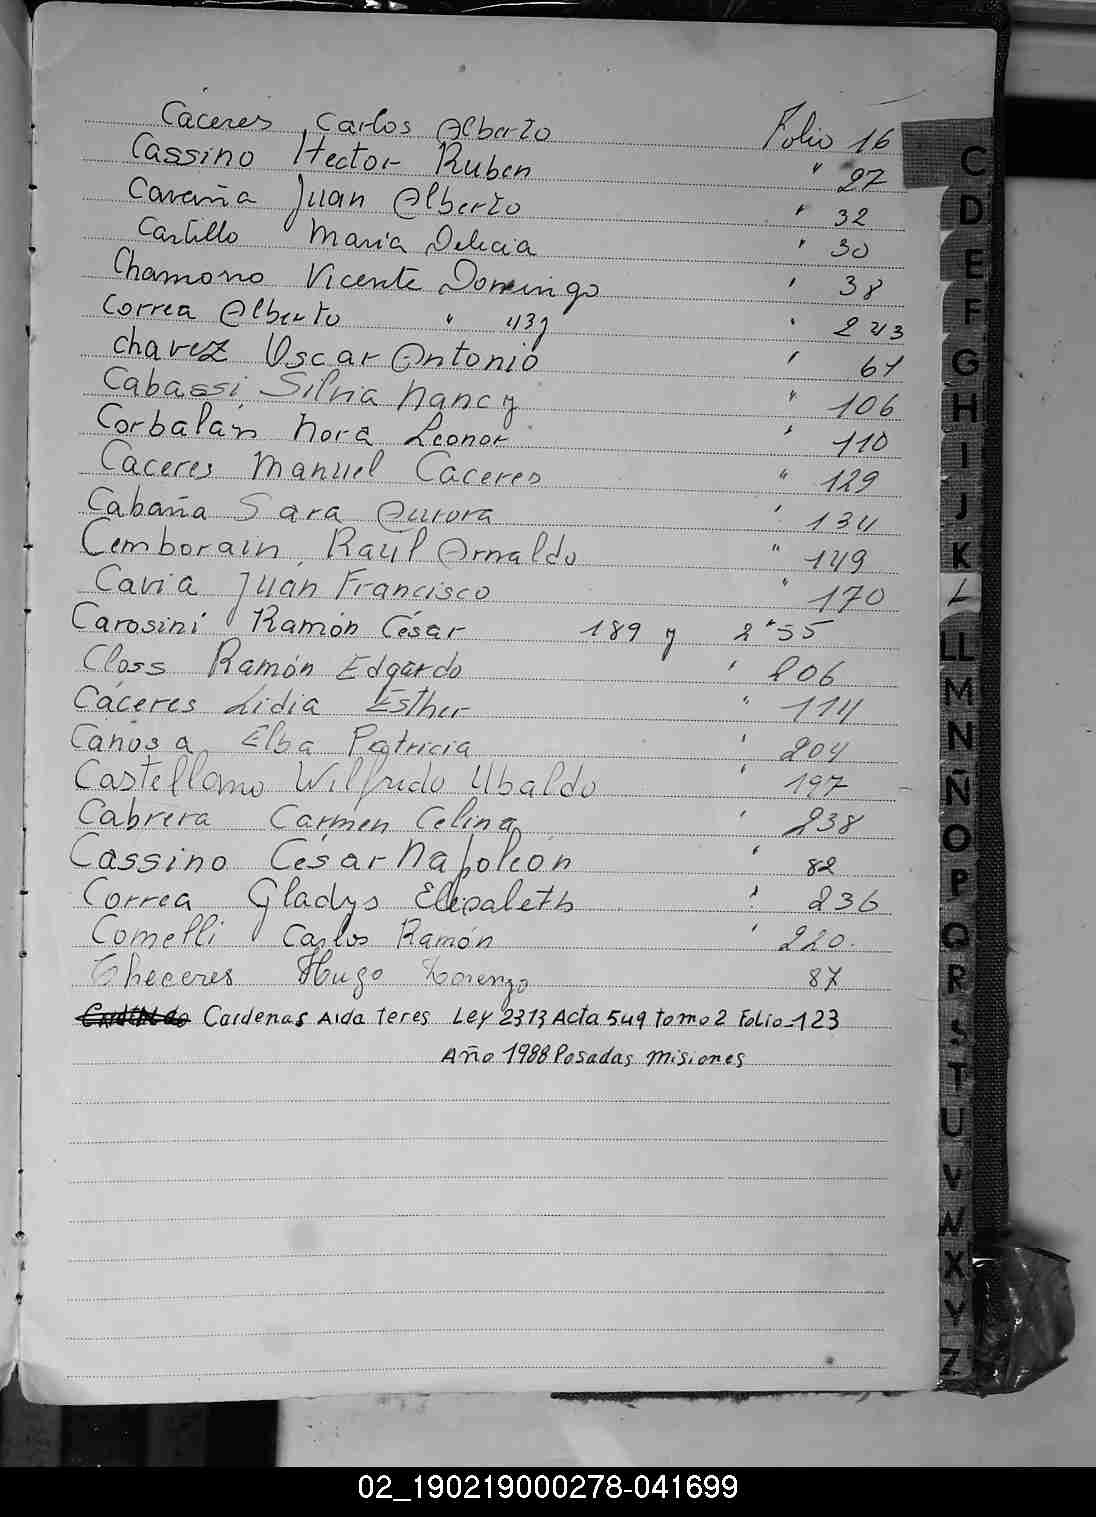 Cáceres Carlos Alberto Folio 16
Cassino Hector Ruben " 27
Juan Alberto " 32
Castillo Maria Delicia " 30
Chamorro Vicente Domingo " 38
Correa Alberto " 243
Chavez Oscar Antonio " 61
Cabassi Silvia Nancy " 106
Corbalán Nora Leonor " 110
Caceres Manuel Caceres " 129
Cabaña Sara Aurora " 134
Cemborain Raúl Arnaldo " 149
Cavia Juan Francisco " 170
Carosini Ramón César 189 y 255
Closs Ramón Edgardo " 206
Cáceres Lidia Esther " 114
Canosa Elba Patricia " 204
Castellano Wilfredo Ubaldo " 197
Cabrera Carmen Celina " 238
Cassino César Napoleón " 82
Correa Gladys Elizabeth " 236
Comelli Carlos Ramón " 220.
Checeres Hugo Lorenzo 87
Cardenas Aida Teres Ley 2313 Acta 549 tomo 2 Folio 123
Año 1988 Posadas Misiones
C
D
E
F
G
H
I
J
K
L
LL
M
N
Ñ
O
P
Q
R
S
T
U
V
W
X
Y
Z
02_190219000278-041699